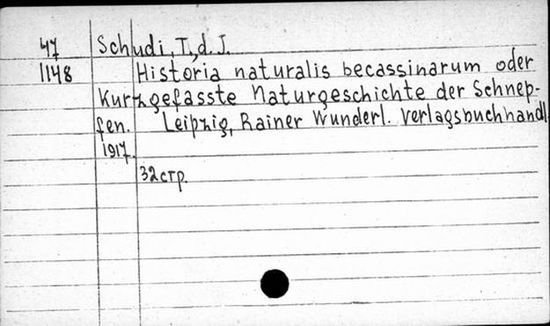 47 Schudi, T, d. J.
1148 Historia naturalis becassinarum oder
Kurzgefasste Naturgeschichte der Schnep-
fen. Leipzig, Rainer Wunderl. Verlagsbuchhandl
1917.
32 стр.